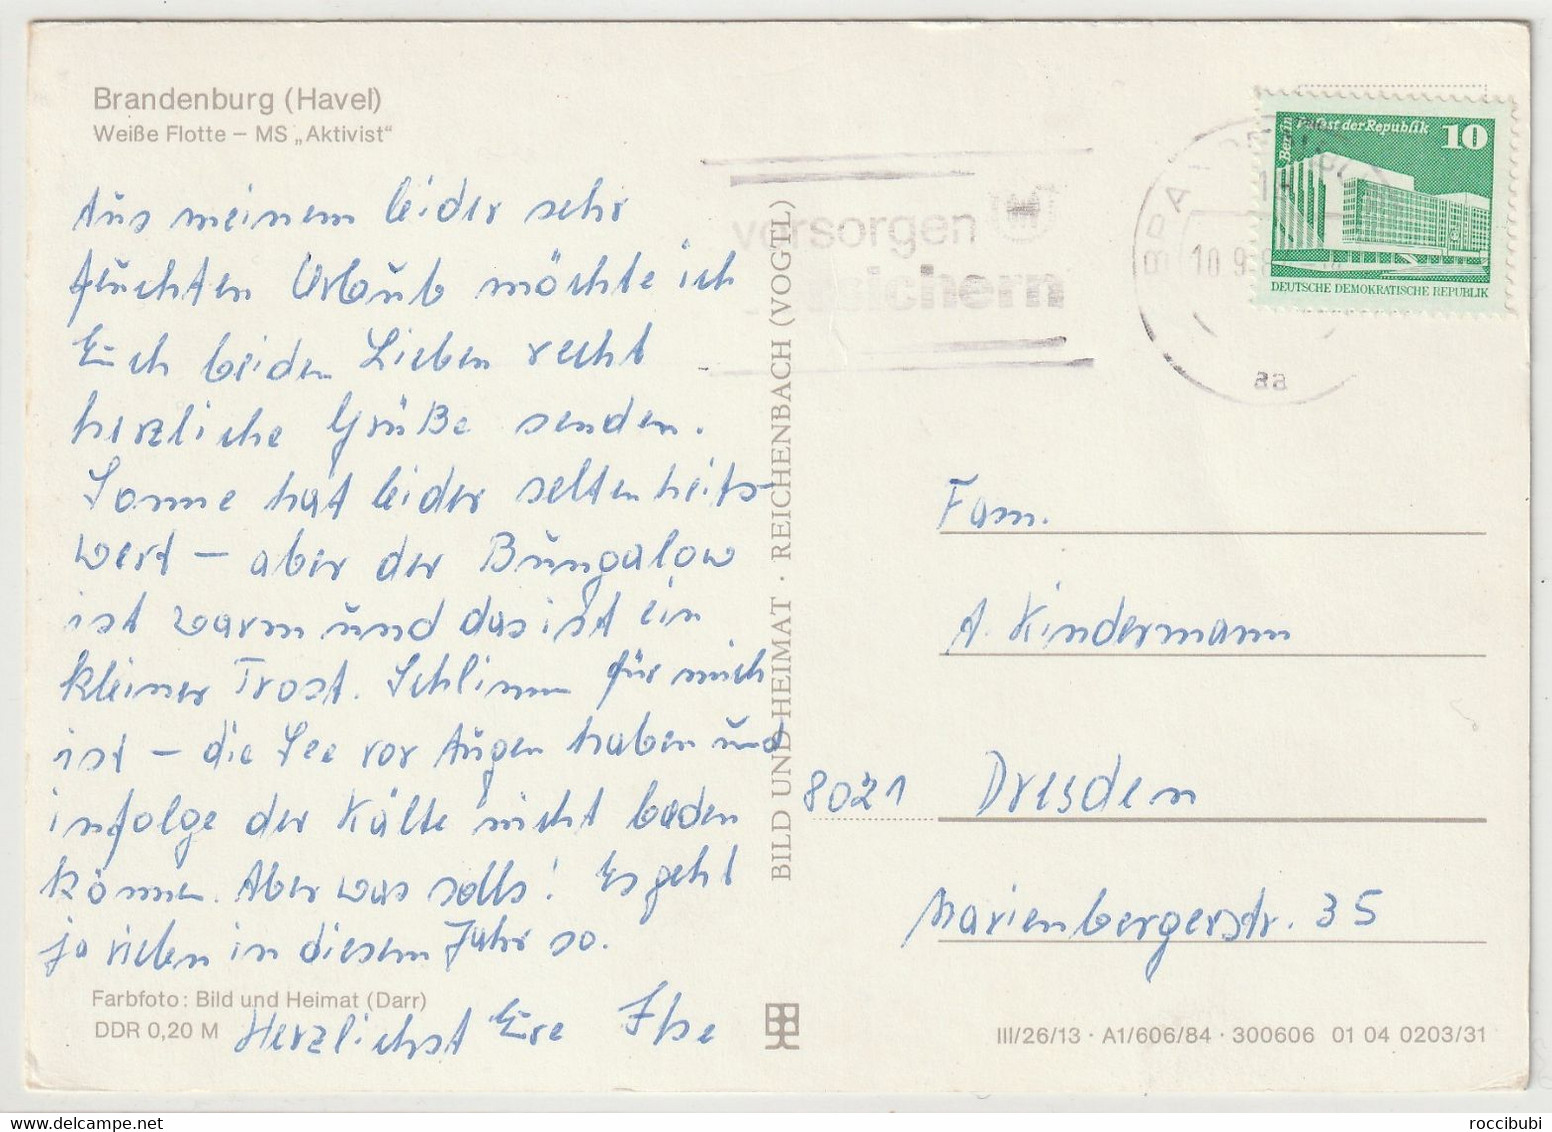 Brandenburg (Havel)
Weiße Flotte – MS „Aktivist“
Aus meinem leider sehr
feuchten Urlaub möchte ich
Euch beiden Lieben recht
herzliche Grüße senden.
Sonne hat leider seltenheits-
wert – aber der Bungalow
ist warm und das ist ein
kleiner Trost. Schlimm für mich
ist – die See vor Augen haben und
infolge der Kälte nicht baden
können. Aber was solls! Es geht
ja vielen in diesem Jahr so.
Herzlichst Ere Ilse
Farbfoto: Bild und Heimat (Darr)
DDR 0,20 M
BILD UND HEIMAT · REICHENBACH (VOGTL)
vorsorgen
10.9.8
aa
Berlin Palast der Republik 10
DEUTSCHE DEMOKRATISCHE REPUBLIK
Fam.
A. Kindermann
8021 Dresden
Marienbergerstr. 35
III/26/13 · A1/606/84 · 300606 01 04 0203/31
roccibubi